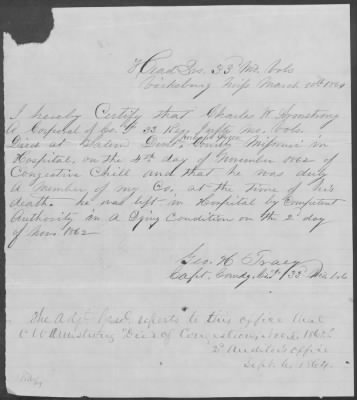 Head Qrs. 33" Mo. Vols
Vicksburg Miss March 10th 1864
I hereby Certify that Charles W Armstrong
A Corporal of Co. 33 Reg Infty Mo. Vols.
Died at Patterson Wayne County Missouri in
Hospital, on the 4th day of November 1862 of
Congestive Chill and that he was duly
A Member of my Co, at the time of his
death. he was left in Hospital by Competent
Authority in A Dying Condition on the 2d day
of Nov. 1862
Geo. H Tracy
Capt. Comdg 33" Mo Vols
The Adjt. Genl. reports to this office that
C W Armstrong Died of Congestion Nov 4, 1862
2d Auditor's Office
Sept 6, 1864